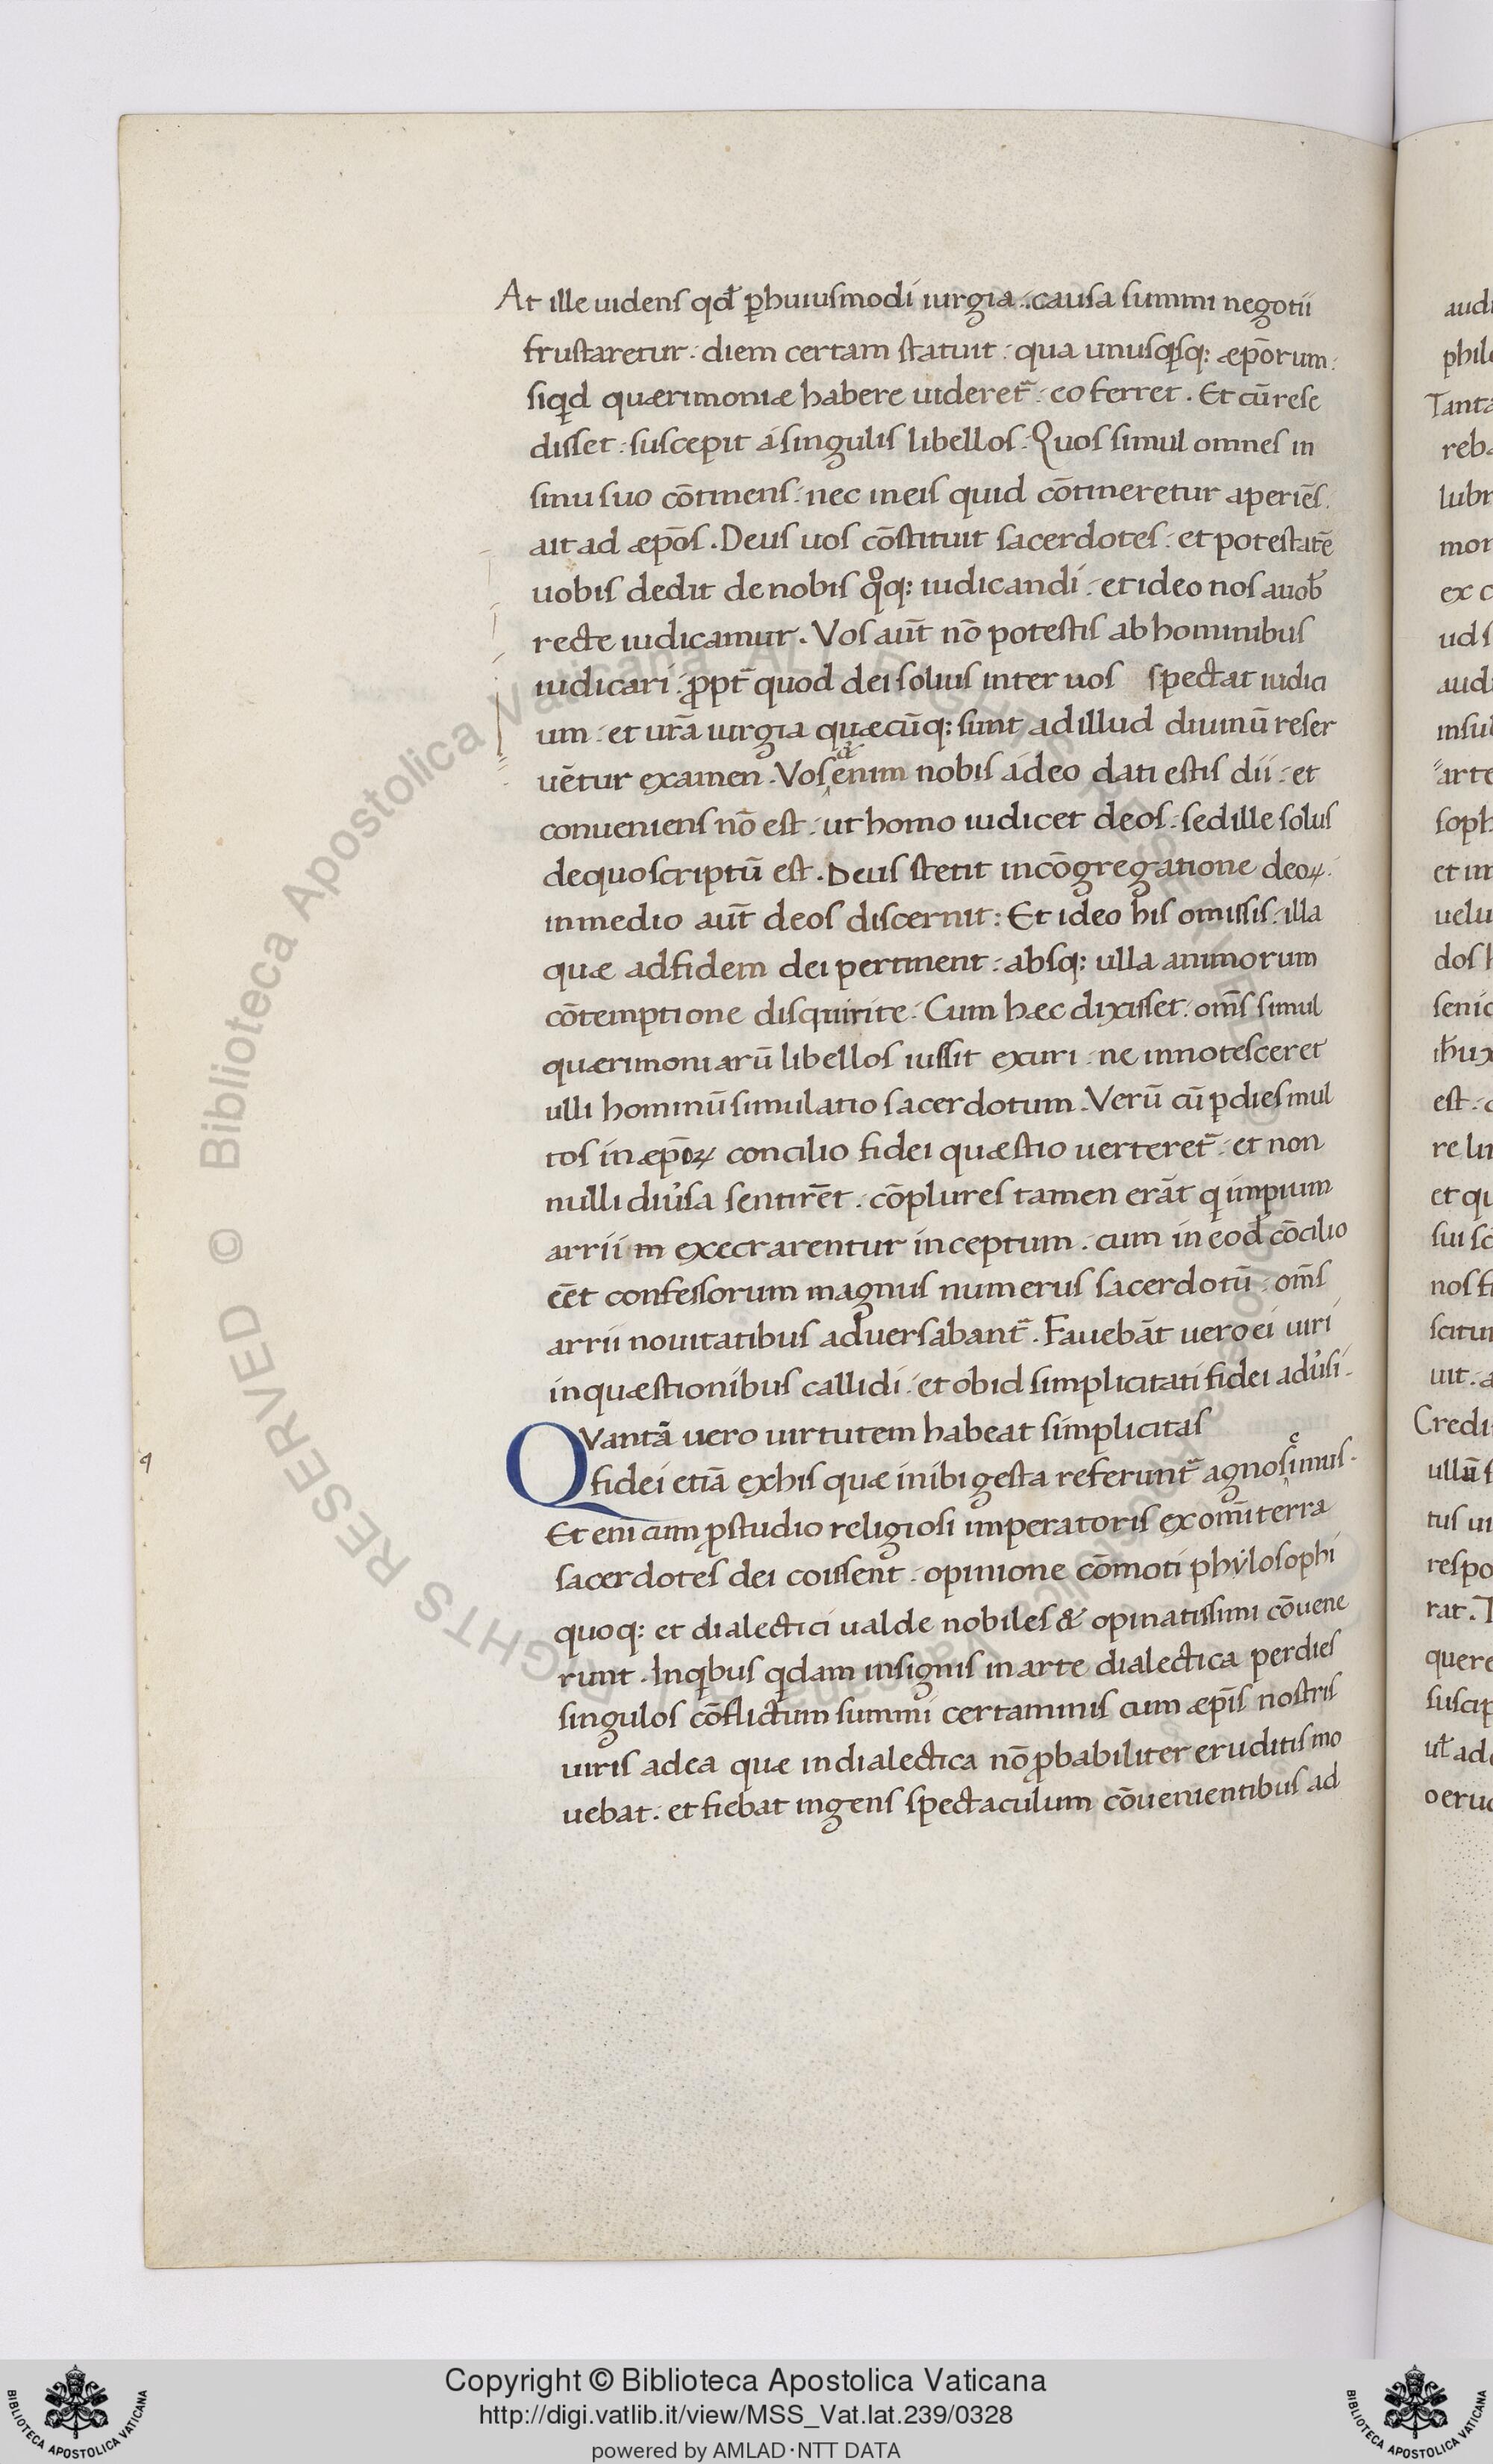 At ille uidens qđ ꝑhuiusmodi iurgia : causa summi negotii
frustaretur : diem certam statuit : qua unusqsq; æpōrum :
siqd quærimoniæ habere uideret̃ : eo ferret . Et cū rese
disset : suscepit a singulis libellos . Quos simul omnes in
sinu suo cōtinens : nec in eis quid cōtineretur aperiēs .
ait ad æpōs . Deus uos cōstituit sacerdotes : et potestatē
uobis dedit de nobis qͦq; iudicandi : et ideo nos a uob̄
recte iudicamur . Vos aūt nō potestis ab hominibus
iudicari : ꝓpt̃ quod dei solius inter uos spectat iudici
um : et ur̃a iurgia quæcūq; sunt ad illud diuinū reser
uētur examen . Vos & enim nobis a deo dati estis dii : et
conueniens nō est : ut homo iudicet deos : sed ille solus
de quo scriptū est . Deus stetit in cōgregatione deoꝝ :
in medio aūt deos discernit : Et ideo his omissis : illa
quæ ad fidem dei pertinent : absq; ulla animorum
cōtemptione disquirite : Cum hæc dixisset : om̄s simul
quærimoniarū libellos iussit exuri : ne innotesceret
ulli hominū simulatio sacerdotum . Verū cū ꝑ dies mul
tos in æpōꝝ concilio fidei quæstio uerteret̃ : et non
nulli diu̓sa sentirēt . cōplures tamen erāt q impium
arrii m execrarentur inceptum . cum in eod̄ cōcilio
eēt confessorum magnus numerus sacerdotū : om̄s
arrii nouitatibus aduersabant̃ . Fauebāt uero ei uiri
in quæstionibus callidi : et ob id simplicitati fidei adu̓si .
QVantā uero uirtutem habeat simplicitas
fidei etiā ex his quæ inibi gesta referunt̃ agnosc̨imus .
Et eni cum ꝓ studio religiosi imperatoris ex om̄i terra
sacerdotes dei coissent : opinione cōmoti phylosophi
quoq; et dialectici ualde nobiles & opinatissimi cōuene
runt . In qbus qdam insignis in arte dialectica per dies
singulos cōflictum summi certaminis cum æpīs nostris
uiris ad ea quæ in dialectica nō ꝓbabiliter eruditis mo
uebat : et fiebat ingens spectaculum cōuenientibus ad
9
audi
phil
Tanta
reb
lubr
mor
ex c
ud s
audi
insul
arte
soph
et im
uelu
dos h
senio
est . c
re lin
et qu
sui sc
nos fi
scitu
uit . a
Credi
ullū f
tus ui
respo
rat . T
quere
suscip
ul̄ ad
o eru
© Biblioteca Apostolica Vaticana ALL RIGHTS RESERVED
Copyright © Biblioteca Apostolica Vaticana
http://digi.vatlib.it/view/MSS_Vat.lat.239/0328
powered by AMLAD·NTT DATA
BIBLIOTECA APOSTOLICA VATICANA
BIBLIOTECA APOSTOLICA VATICANA